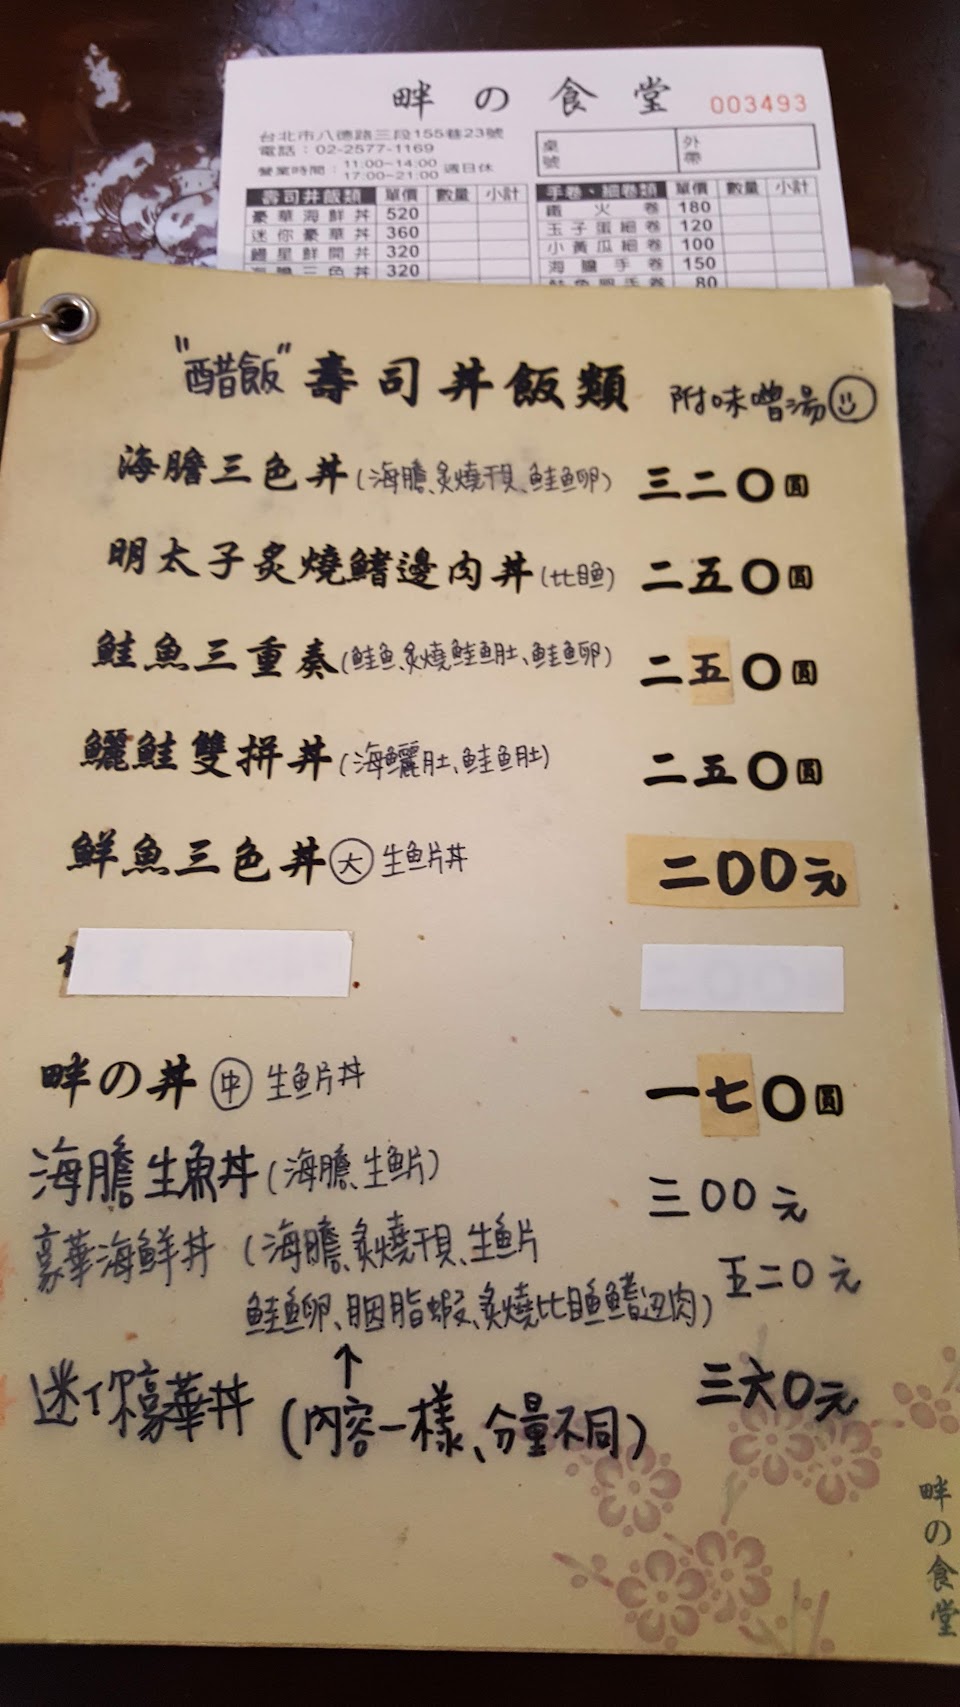 畔の食堂 003493
台北市八德路三段155巷23號
電話：02-2577-1169
營業時間：11:00~14:00 17:00~21:00 週日休
桌號 外帶
壽司丼飯類 單價 數量 小計
豪華海鮮丼 520
迷你豪華丼 360
320
海膽三色丼 320
手卷、細卷類 單價 數量 小計
鐵火卷 180
玉子蛋細卷 120
小黃瓜細卷 100
海膽手卷 150
鮭魚卵手卷 80
"醋飯" 壽司丼飯類 附味噌湯
海膽三色丼(海膽、炙燒干貝、鮭魚卵) 三二〇圓
明太子炙燒鰭邊肉丼(比目魚) 二五〇圓
鮭魚三重奏(鮭魚、炙燒鮭魚肚、鮭魚卵) 二五〇圓
鱺鮭雙拼丼(海鱺肚、鮭魚肚) 二五〇圓
鮮魚三色丼 大 生魚片丼 二00元
畔の丼 中 生魚片丼 一七〇圓
海膽生魚丼(海膽、生魚片) 三00元
豪華海鮮丼(海膽、炙燒干貝、生魚片
鮭魚卵、胭脂蝦、炙燒比目魚鰭边肉) 五二0元
↑
迷你豪華丼(內容一樣、分量不同) 三六0元
畔の食堂